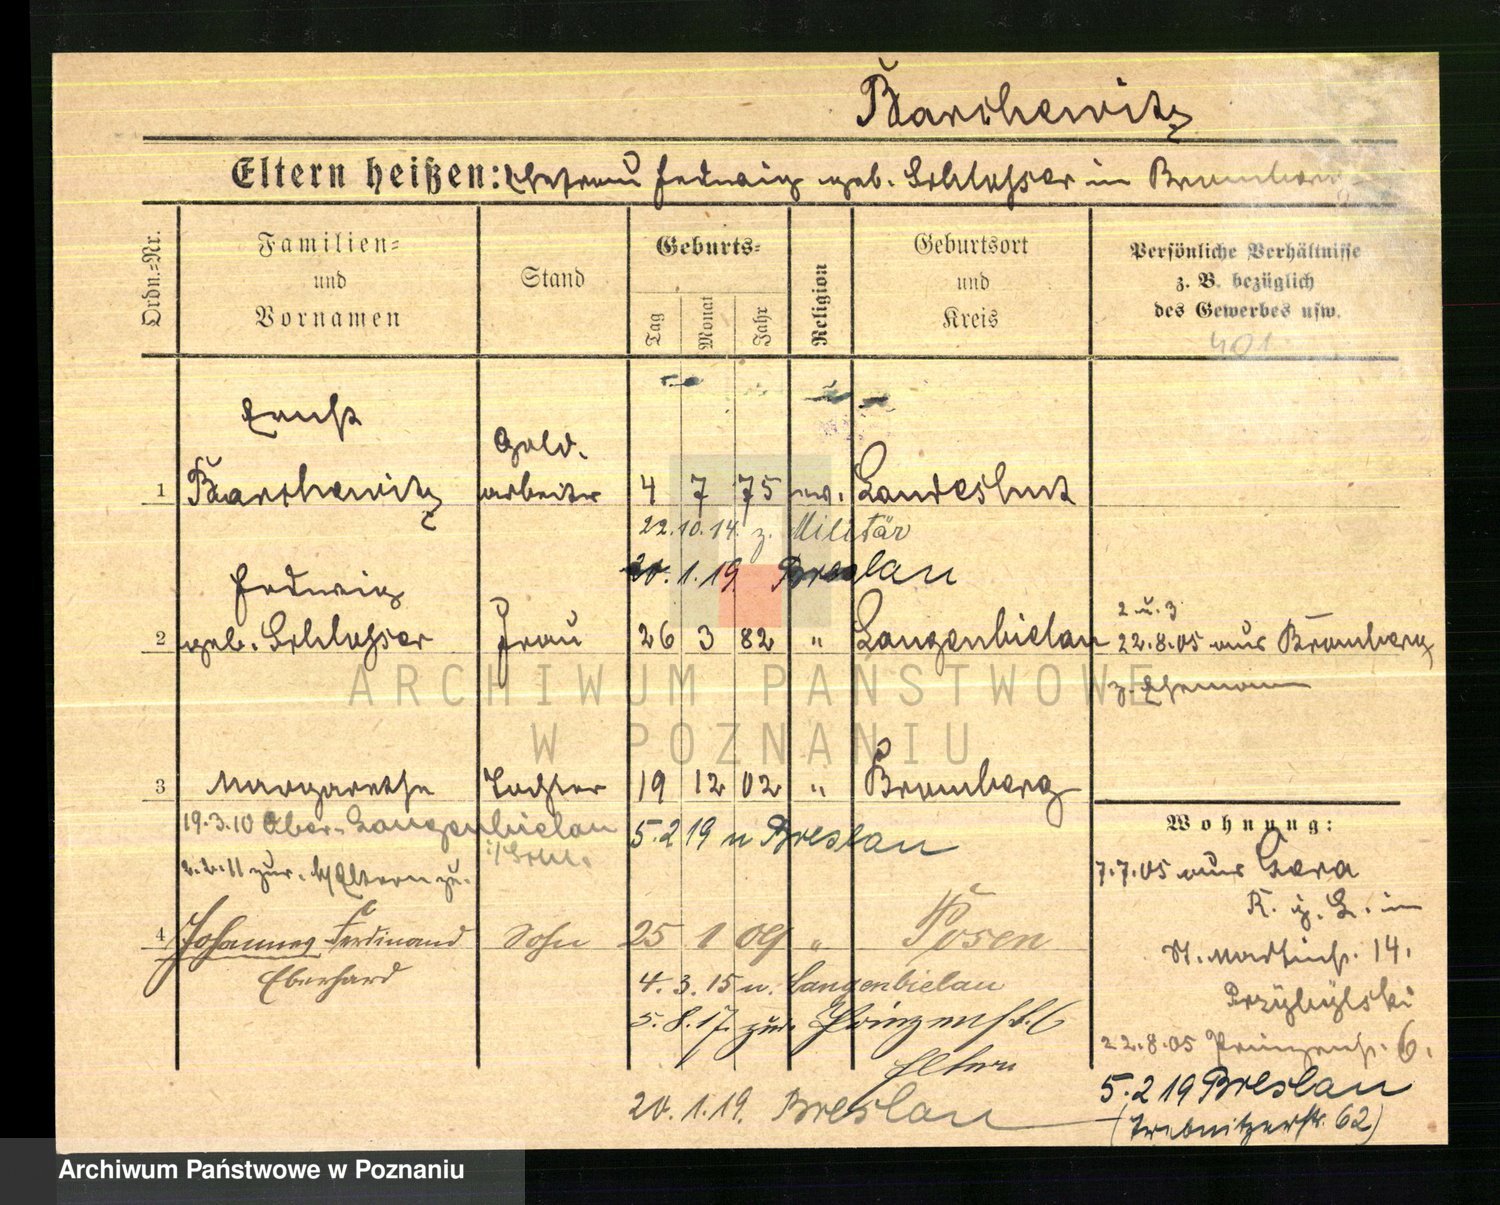 Barschewitz
Eltern heißen: Ehefrau Hedwig geb. Schlosser in Bromberg
Ordn.=Nr.
Familien=
und
Vornamen
Stand
Geburts=
Tag
Monat
Jahr
Religion
Geburtsort
und
Kreis
Persönliche Verhältnisse
z. B. bezüglich
des Gewerbes usw.
401
Ernst
Gold.
1 Barschewitz arbeiter 4 7 75 ev. Landeshut
22.10.14. z. Militär
20.1.19. Breslau
Hedwig
2 geb. Schlosser Frau 26 3 82 " Langenbielau
2 u. 3
22.8.05 aus Bromberg
z. Ehemann
3 Margarethe Tochter 19 12 02 " Bromberg
19.3.10 Ober-Langenbielau
i/Schl.
5.2 19 n Breslau
2.2.11 zur. Eltern zu.
4 Johannes Ferdinand Sohn 25 1 09 " Posen
Eberhard
4.3.15 n. Langenbielau
5.8.17. zur. Prinzenst. 6
Eltern
20.1.19. Breslau
Wohnung:
7.7.05 aus Gera
St. Martinst. 14.
Przybylski
22.8.05 Prinzenst. 6.
5.2 19 Breslau
(Trebnitzerstr. 62)
ARCHIWUM PAŃSTWOWE
W POZNANIU
Archiwum Państwowe w Poznaniu